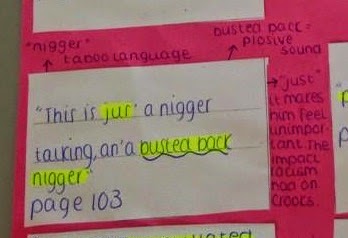 "nigger"
↑ taboo language
busted back =
↑ plosive
sound
"This is jus' a nigger
talking, an' a busted back
nigger"
page 103
→ "just"
it makes
him feel
unimpor-
tant. The
impact
racism
had on
crooks.